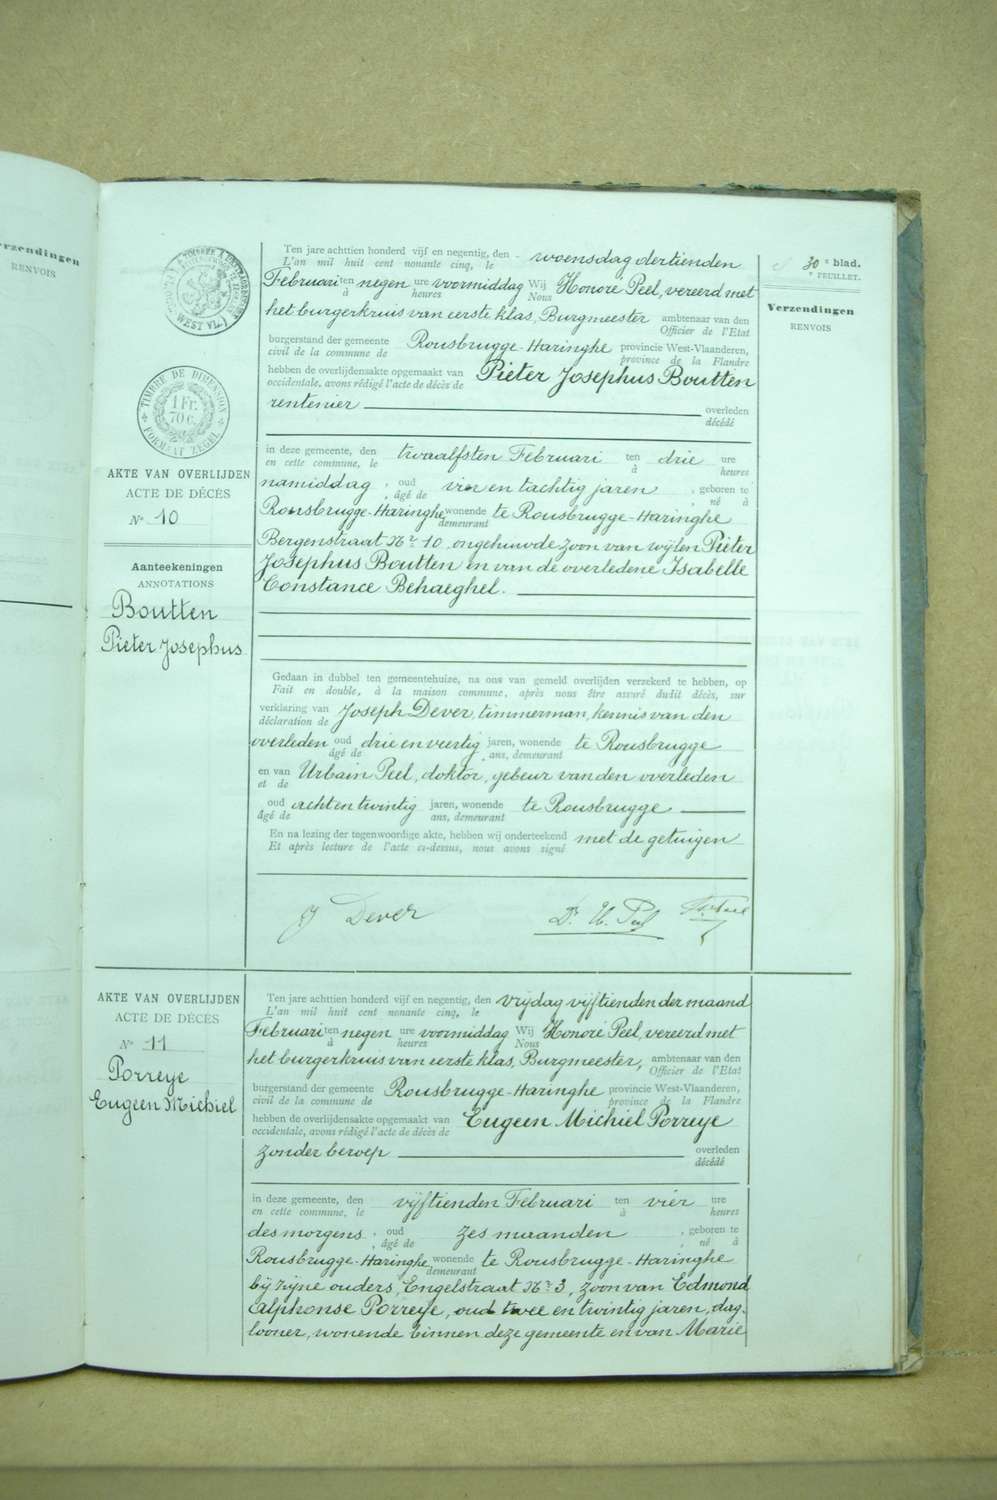 rzendingen
RENVOIS
30e blad.
e FEUILLET.
Verzendingen
RENVOIS
WEST VL.
TIMBRE DE DIMENSION
1 Fr.
70 c.
FORMAAT ZEGEL
AKTE VAN OVERLIJDEN
ACTE DE DÉCÈS
No 10
Aanteekeningen
ANNOTATIONS
Boutten
Pieter Josephus
Ten jare achttien honderd vijf en negentig, den woensdag dertienden
L'an mil huit cent nonante cinq, le
Februari ten negen ure voormiddag Wij Honoré Peel, vereerd met
à heures Nous
het burgerkruis van eerste klas, Burgmeester ambtenaar van den
Officier de l'Etat
burgerstand der gemeente Rousbrugge-Haringhe provincie West-Vlaanderen,
civil de la commune de province de la Flandre
hebben de overlijdensakte opgemaakt van Pieter Josephus Boutten
occidentale, avons rédigé l'acte de décès de
rentenier overleden
décédé
in deze gemeente, den twaalfsten Februari ten drie ure
en cette commune, le à heures
namiddag, oud vier en tachtig jaren, geboren te
, âgé de , né à
Rousbrugge-Haringhe wonende te Rousbrugge-Haringhe
demeurant
Bergenstraat Nr 10, ongehuwde zoon van wijlen Pieter
Josephus Boutten en van de overledene Isabelle
Constance Behaeghel.
Gedaan in dubbel ten gemeentehuize, na ons van gemeld overlijden verzekerd te hebben, op
Fait en double, à la maison commune, après nous être assuré dudit décès, sur
verklaring van Joseph Dever, timmerman, kennis van den
déclaration de
overleden oud drie en veertig jaren, wonende te Rousbrugge
âgé de ans, demeurant
en van Urbain Peel, doktor, gebeur van den overleden
et de
oud acht en twintig jaren, wonende te Rousbrugge
âgé de ans, demeurant
En na lezing der tegenwoordige akte, hebben wij onderteekend met de getuigen
Et après lecture de l'acte ci-dessus, nous avons signé
J Dever Dr U. Peel
AKTE VAN OVERLIJDEN
ACTE DE DÉCÈS
No 11
Porreye
Eugeen Michiel
Ten jare achttien honderd vijf en negentig, den vrijdag vijftienden der maand
L'an mil huit cent nonante cinq, le
Februari ten negen ure voormiddag Wij Honoré Peel, vereerd met
à heures Nous
het burgerkruis van eerste klas, Burgmeester, ambtenaar van den
Officier de l'Etat
burgerstand der gemeente Rousbrugge-Haringhe provincie West-Vlaanderen,
civil de la commune de province de la Flandre
hebben de overlijdensakte opgemaakt van Eugeen Michiel Porreye
occidentale, avons rédigé l'acte de décès de
zonder beroep overleden
décédé
in deze gemeente, den vijftienden Februari ten vier ure
en cette commune, le à heures
des morgens, oud zes maanden, geboren te
, âgé de , né à
Rousbrugge-Haringhe, wonende te Rousbrugge-Haringhe
demeurant
bij zijne ouders, Engelstraat Nr 3, zoon van Edmond
Alphonse Porreye, oud twee en twintig jaren, dag-
looner, wonende binnen deze gemeente en van Marie